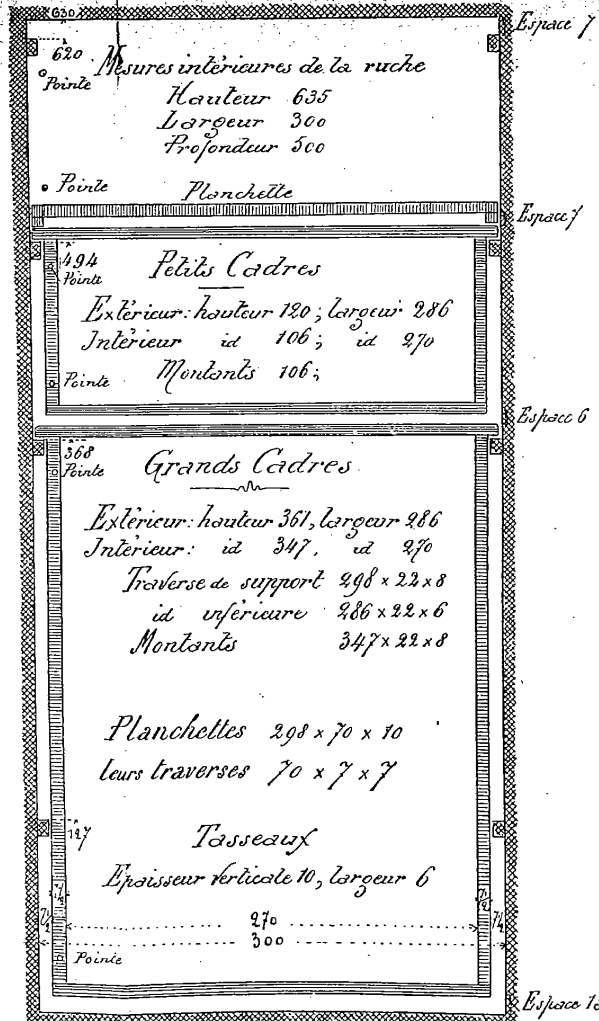 630
Espace 7
620
Pointe
Mesures intérieures de la ruche
Hauteur 635
Largeur 300
Profondeur 500
Pointe
Planchette
Espace 7
494
Pointe
Petits Cadres
Extérieur: hauteur 120; largeur 286
Intérieur id 106; id 270
Montants 106;
Pointe
Espace 6
368
Pointe
Grands Cadres
Extérieur: hauteur 361, largeur 286
Intérieur: id 347, id 270
Traverse de support 298 x 22 x 8
id inférieure 286 x 22 x 6
Montants 347 x 22 x 8
Planchettes 298 x 70 x 10
leurs traverses 70 x 7 x 7
127
Tasseaux
Epaisseur verticale 10, largeur 6
270
300
Pointe
Espace